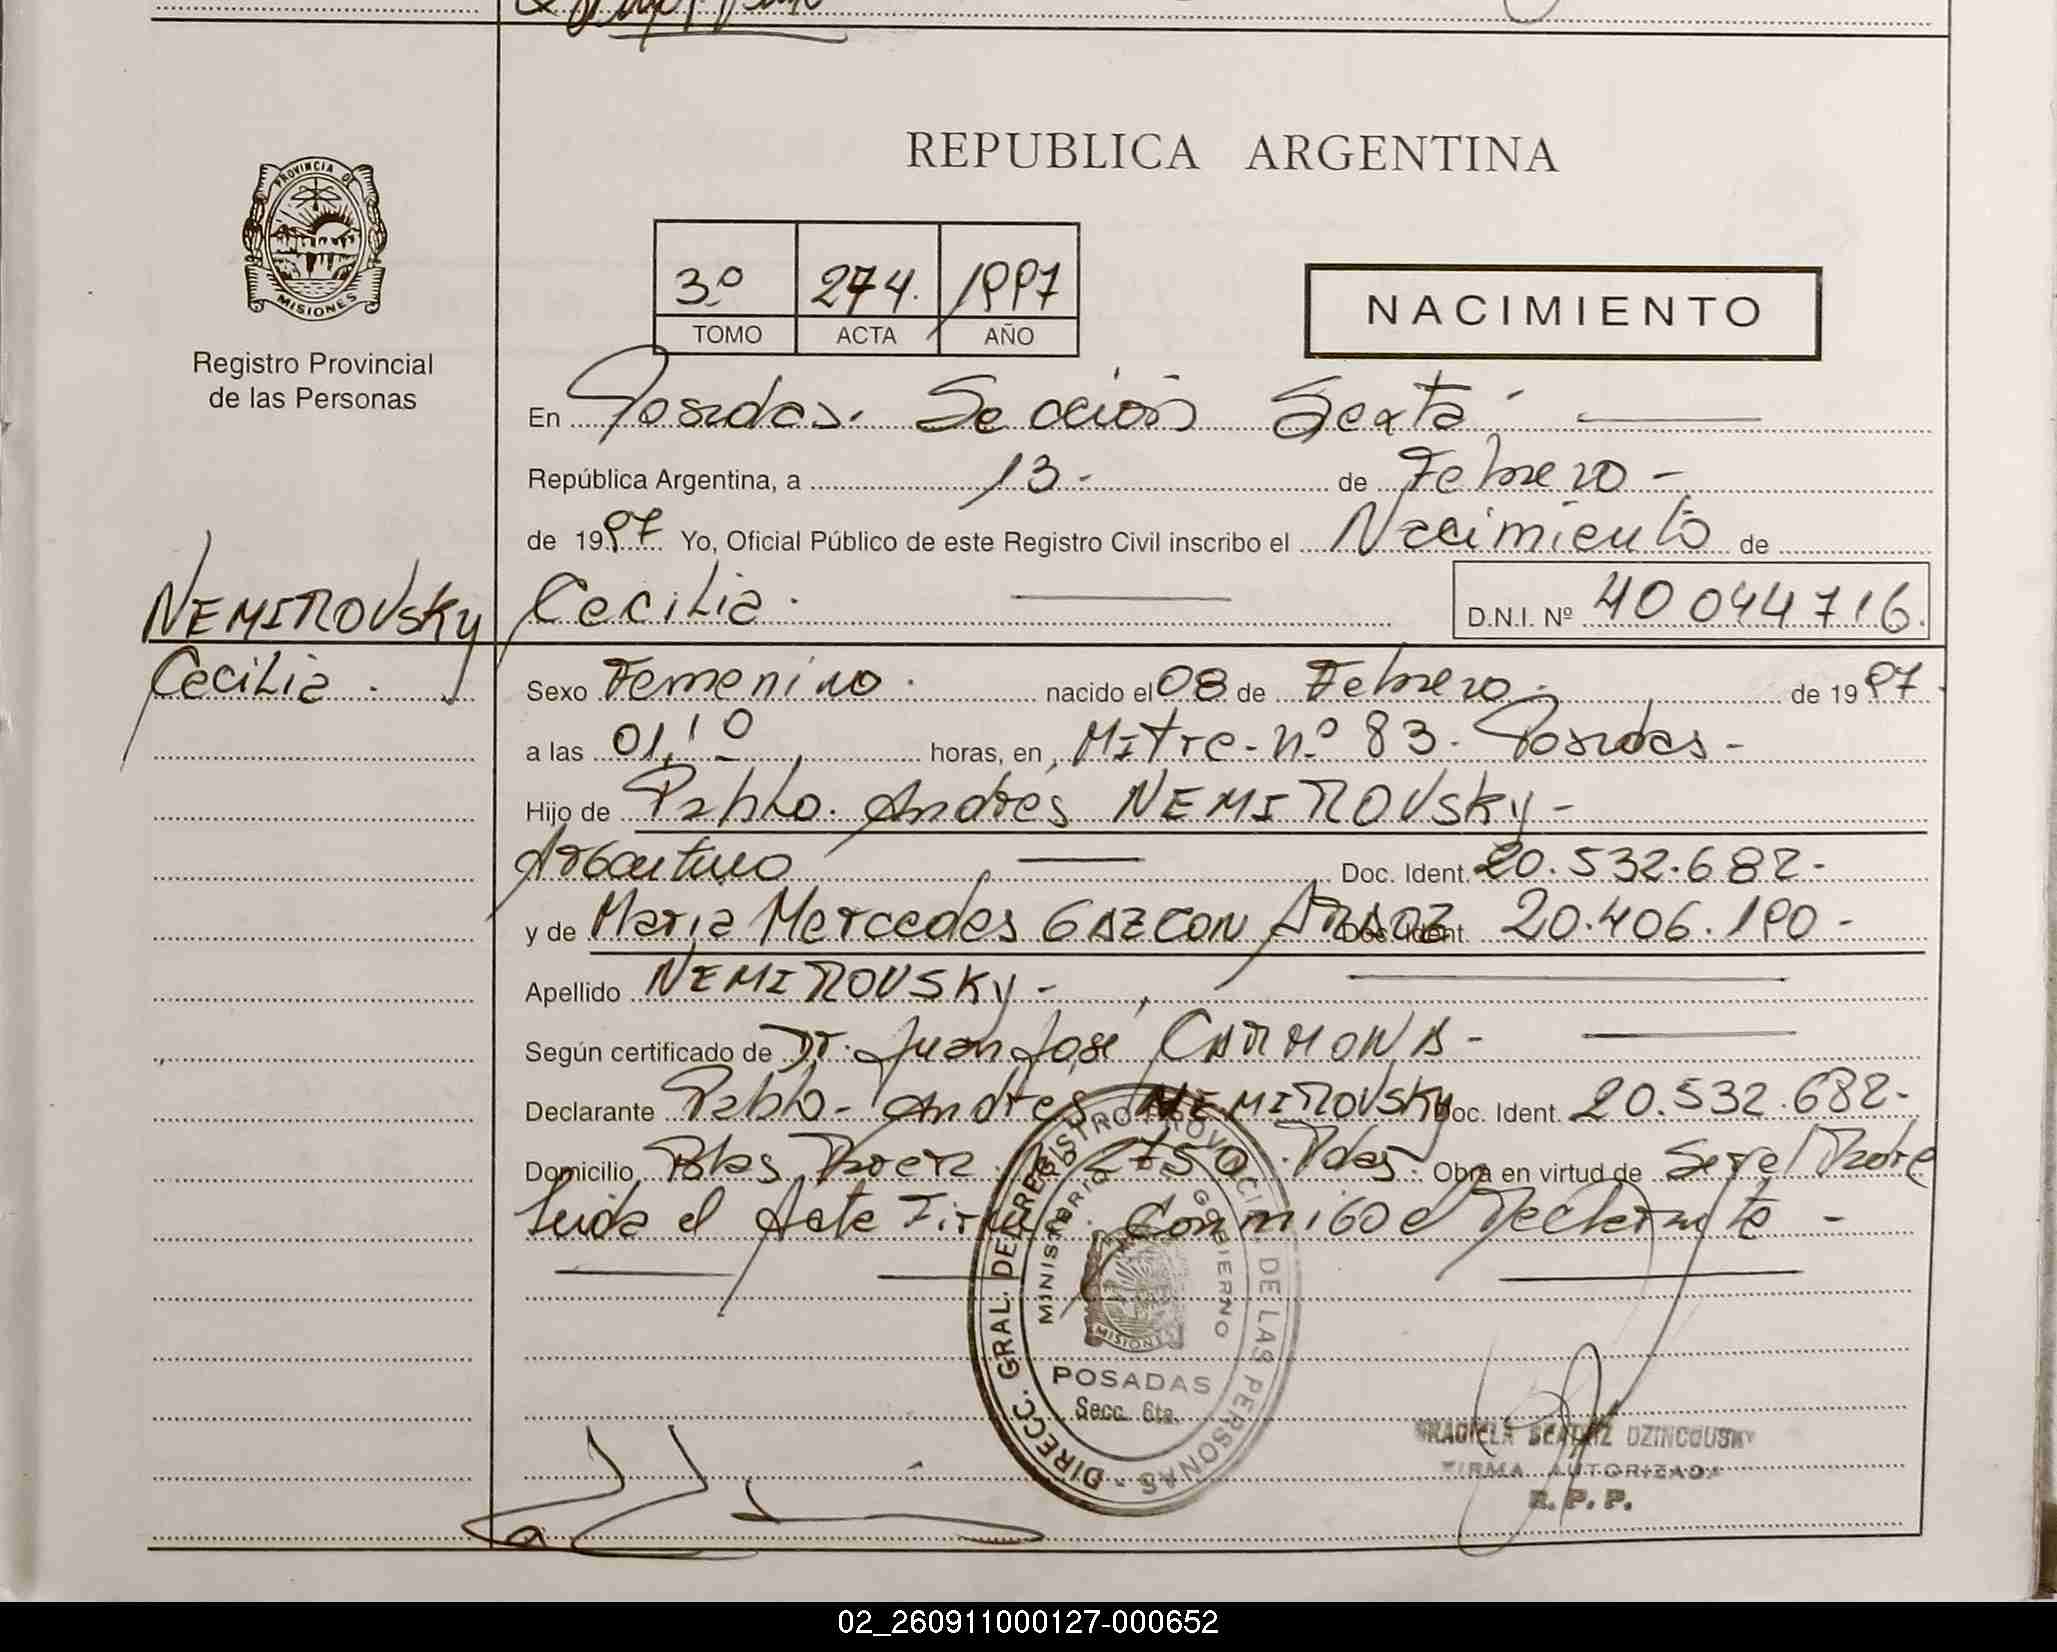 REPUBLICA ARGENTINA
PROVINCIA DE
MISIONES
Registro Provincial
de las Personas
3º 274. 1997
TOMO ACTA AÑO
NACIMIENTO
En Posadas. Sección Sexta
República Argentina, a 13 - de Febrero -
de 1997 Yo, Oficial Público de este Registro Civil inscribo el Nacimiento de
NEMIROVSKY
Cecilia.
Cecilia. D.N.I. Nº 40 044 716.
Sexo Femenino. nacido el 08 de Febrero. de 1997.
a las 01,10 horas, en Mitre - nº 83. Posadas -
Hijo de Pablo. Andrés NEMIROVSKY -
Argentino Doc. Ident. 20.532.682 -
y de Maria Mercedes GAZCON ARAOZ Doc. Ident. 20.406.190 -
Apellido NEMIROVSKY -
Según certificado de Dr. Juan José CARMONA -
Declarante Pablo - Andres NEMIROVSKY Doc. Ident. 20.532.682 -
Domicilio 2750. Pdas. Obra en virtud de Ser el Padre
Leida el Acta Firma Conmigo el Declarante -
DIRECC. GRAL. DEL REGISTRO PROVINCIAL DE LAS PERSONAS -
MINISTERIO DE GOBIERNO
MISIONES
POSADAS
Secc. 6ta.
GRACIELA BEATRIZ DZINCOUSKY
FIRMA AUTORIZADA
R. P. P.
02_260911000127-000652